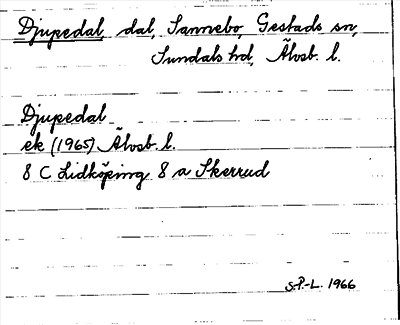 Djupedal, dal, Sannebo, Gestads sn,
Sundals hd, Älvsb. l.
Djupedal
ek (1965) Älvsb. l.
8 C Lidköping 8 a Skerrud
S.P.-L. 1966